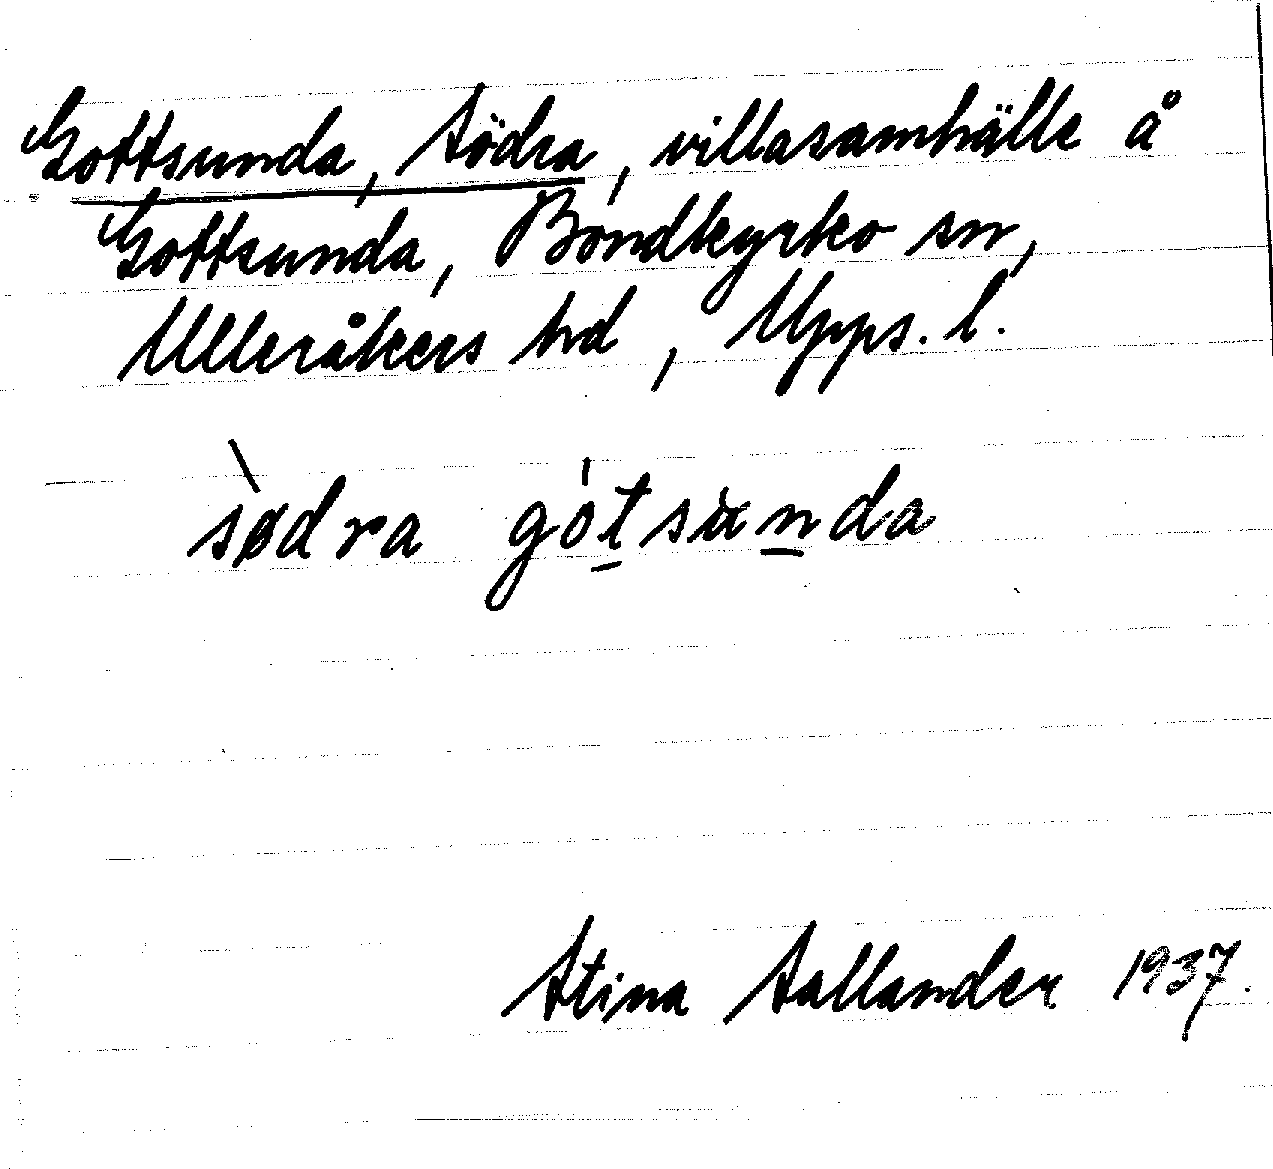 Gottsunda, Södra, villasamhälle å
Gottsunda, Bondkyrko sn,
Ulleråkers hd, Upps. l.
sø̀dra gót̲sùn̲da
Stina Sallander 1937.